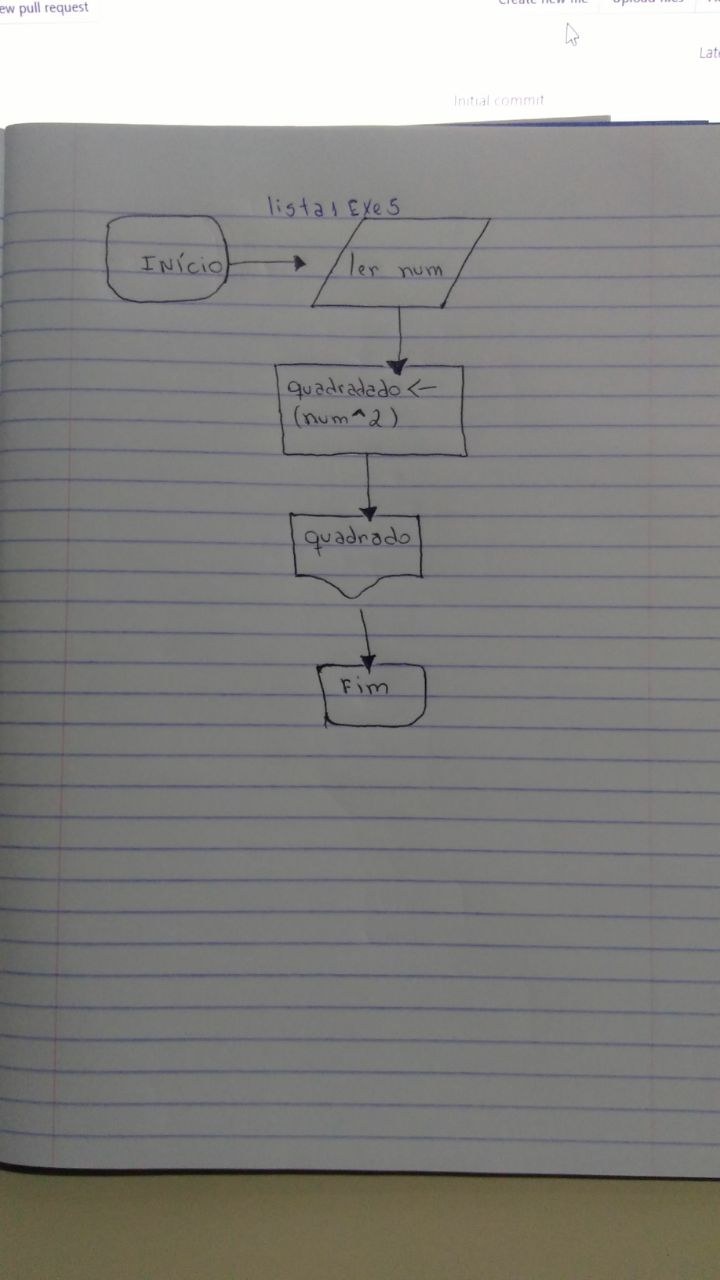 ew pull request
Create new file
Upload files
Late
Initial commit
lista1 Exe5
INÍCIO
ler num
quadradado <-
(num^2)
quadrado
Fim